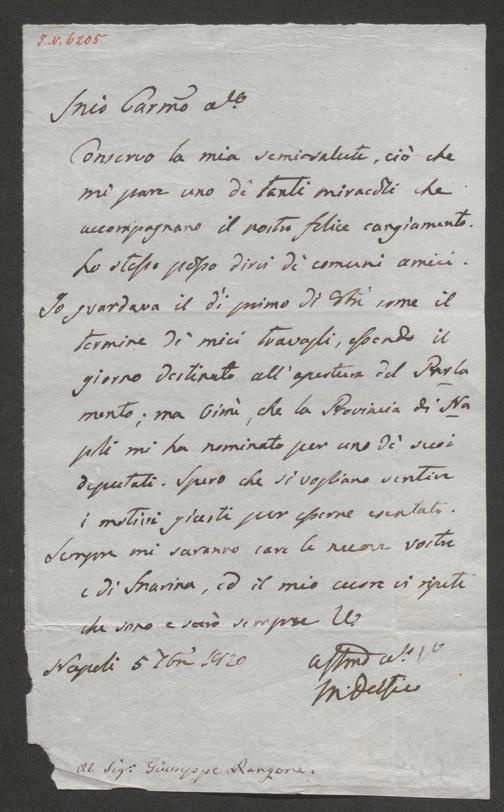 I.N. 6205
Mio Carmo a.co
Conservo la mia semisalute, ciò che
mi pare uno de' tanti miracoli che
accompagnano il nostro felice cangiamento.
Lo stesso posso dirvi de' comuni amici.
Io guardava il dì primo di 8bre come il
termine de' miei travagli, essendo il
giorno destinato all'apertura del Parla
mento; ma oimè, che la Provincia di Na
poli mi ha nominato per uno de' suoi
deputati. Spero che si vogliano sentire
i motivi giusti per esserne esentato.
Sempre mi saranno care le nuove vostre
e di Marina, ed il mio cuore vi ripete
che sono e sarò sempre
Napoli 5 7bre 1820
affmo a.co
M. Delfico
Al Sigr. Giuseppe Rangone.